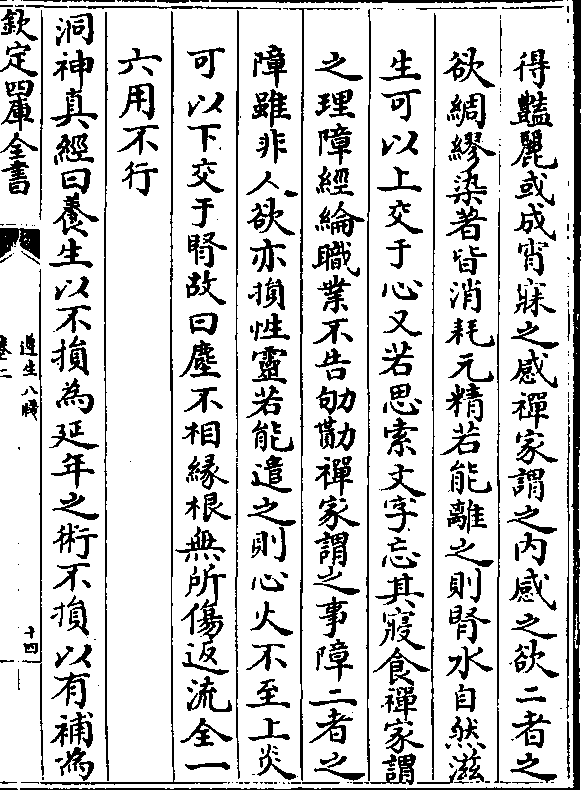 得豔麗或成宵寐之感禪家謂之內感之欲二者之
欲綢繆染著皆消耗元精若能離之則腎水自然滋
生可以上交于心又若思索文字忘其寢食禪家謂
之理障經綸職業不告劬勩禪家謂之事障二者之
障雖非人欲亦損性靈若能遣之則心火不至上炎
可以下交于腎故曰塵不相緣根無所偶返流全一
六用不行
洞神真經曰養生以不損為延年之術不損以有補為
欽定四庫全書
遵生八牋
卷二
十四